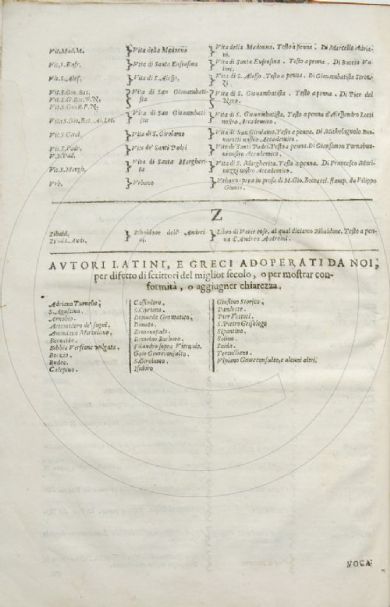 Vit. Mad. M. } Vita della Madonna } Vita della Madonna. Testo a penna. Di Marcello Adriani.
Vit. S. Eufr. } Vita di Santa Eufrosina } Vita di Santa Eufrosina. Testo a penna. Di Baccio Valori.
Vit. S. Aless. } Vita di S. Alesso. } Vita di S. Alesso. Testo a penna. Di Giovambatista Strozzi.
Vit. S. Gio. Bat. } Vita di San Giovambatista } Vita di S. Giovambatista. Testo a penna. Di Pier del Nero.
Vita di San Giovambatista } Vita di S. Giovambatista. Testo a penna d'Alessandro
nostro Accademico.
Vit. S. Girol. } Vita di S. Girolamo } Vita di San Girolamo. Testo a penna. Di
nostro Accademico.
Vit. S. Padr. } Vite de' Santi Padri } Vite de' Santi Padri. Testo a penna. Di Giovanni Turnabuoni nostro Accademico.
Vit. S. Margh. } Vita di Santa Margherita } Vita di S. Margherita. Testo a penna. Di Francesco
nostro Accademico.
Urb. } Urbano } Urbano: opera in prosa di M. Gio. Boccacci. stamp. da Filippo Giunti.
Z
Zibald. Andr. } Zibaldone dell' Andreini. } Libro di varie cose, al qual diciamo Zibaldone. Testo a penna d'Andrea Andreini.
AVTORI LATINI, E GRECI ADOPERATI DA NOI,
per difetto di scrittori del miglior secolo, o per mostrar con-
formità, o aggiugner chiarezza.
Adriano Turnebo.
S. Agostino.
Arnobio.
Artemidoro de' sogni.
Ammiano Marcellino.
Bibbia Versione volgata.
Boezio.
Budeo.
Calepino.
Cassiodoro.
S. Cipriano.
Donato.
Ermolao Barbaro.
Filandro sopra Vitruvio.
Gaio Giureconsulto.
S. Girolamo.
Isidoro
Giustino Storico.
Pier Vettori.
S. Pietro Grisologo
Sipontino.
Solino.
Suida.
Tertulliano.
Ulpiano Giureconsulto, e alcuni altri.
VOCA-